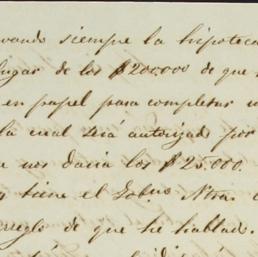 vando siempre la hipoteca
lugar de los $200.000 de que
en papel para completar
la cual será autorizado por
nos daria los $25.000.
tiene el Gobno. Ntra.
arreglo de que he hablado.